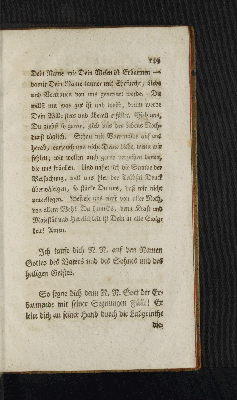 149
Dein Name wie Dein Wesen ist Erbarmen —
damit Dein Name immer mit Ehrfurcht, Liebe
und Vertrauen von uns genennet werde. Du
willst nur was gut ist und willst, darum werde
Dein Wille stets und überall erfüllet. Gieb uns,
Du giebst so gerne, gieb uns des Lebens Noth-
durft täglich. Schau mit Vatertreue auf uns
herab, entzeuch uns nicht Deine Liebe, wenn wir
fehlen; wir wollen auch gerne verzeihen denen,
die uns kränken. Und nahet sich die Stunde der
Versuchung, will uns hier der Trübsal Druck
überwältigen, so stärke Du uns, daß wir nicht
unterliegen. Befreie uns einst von aller Noch,
von allem Weh! Du kannst's, denn Kraft und
Majestät und Herrlichkeit ist Dein in alle Ewig-
keit! Amen.
Ich taufe dich N. N. auf den Namen
Gottes des Vaters und des Sohnes und des
heiligen Geistes.
So segne dich denn N. N. Gott der Er-
barmende mit seiner Segnungen Fülle! Er
leite dich an seiner Hand durch die Labyrinthe
die